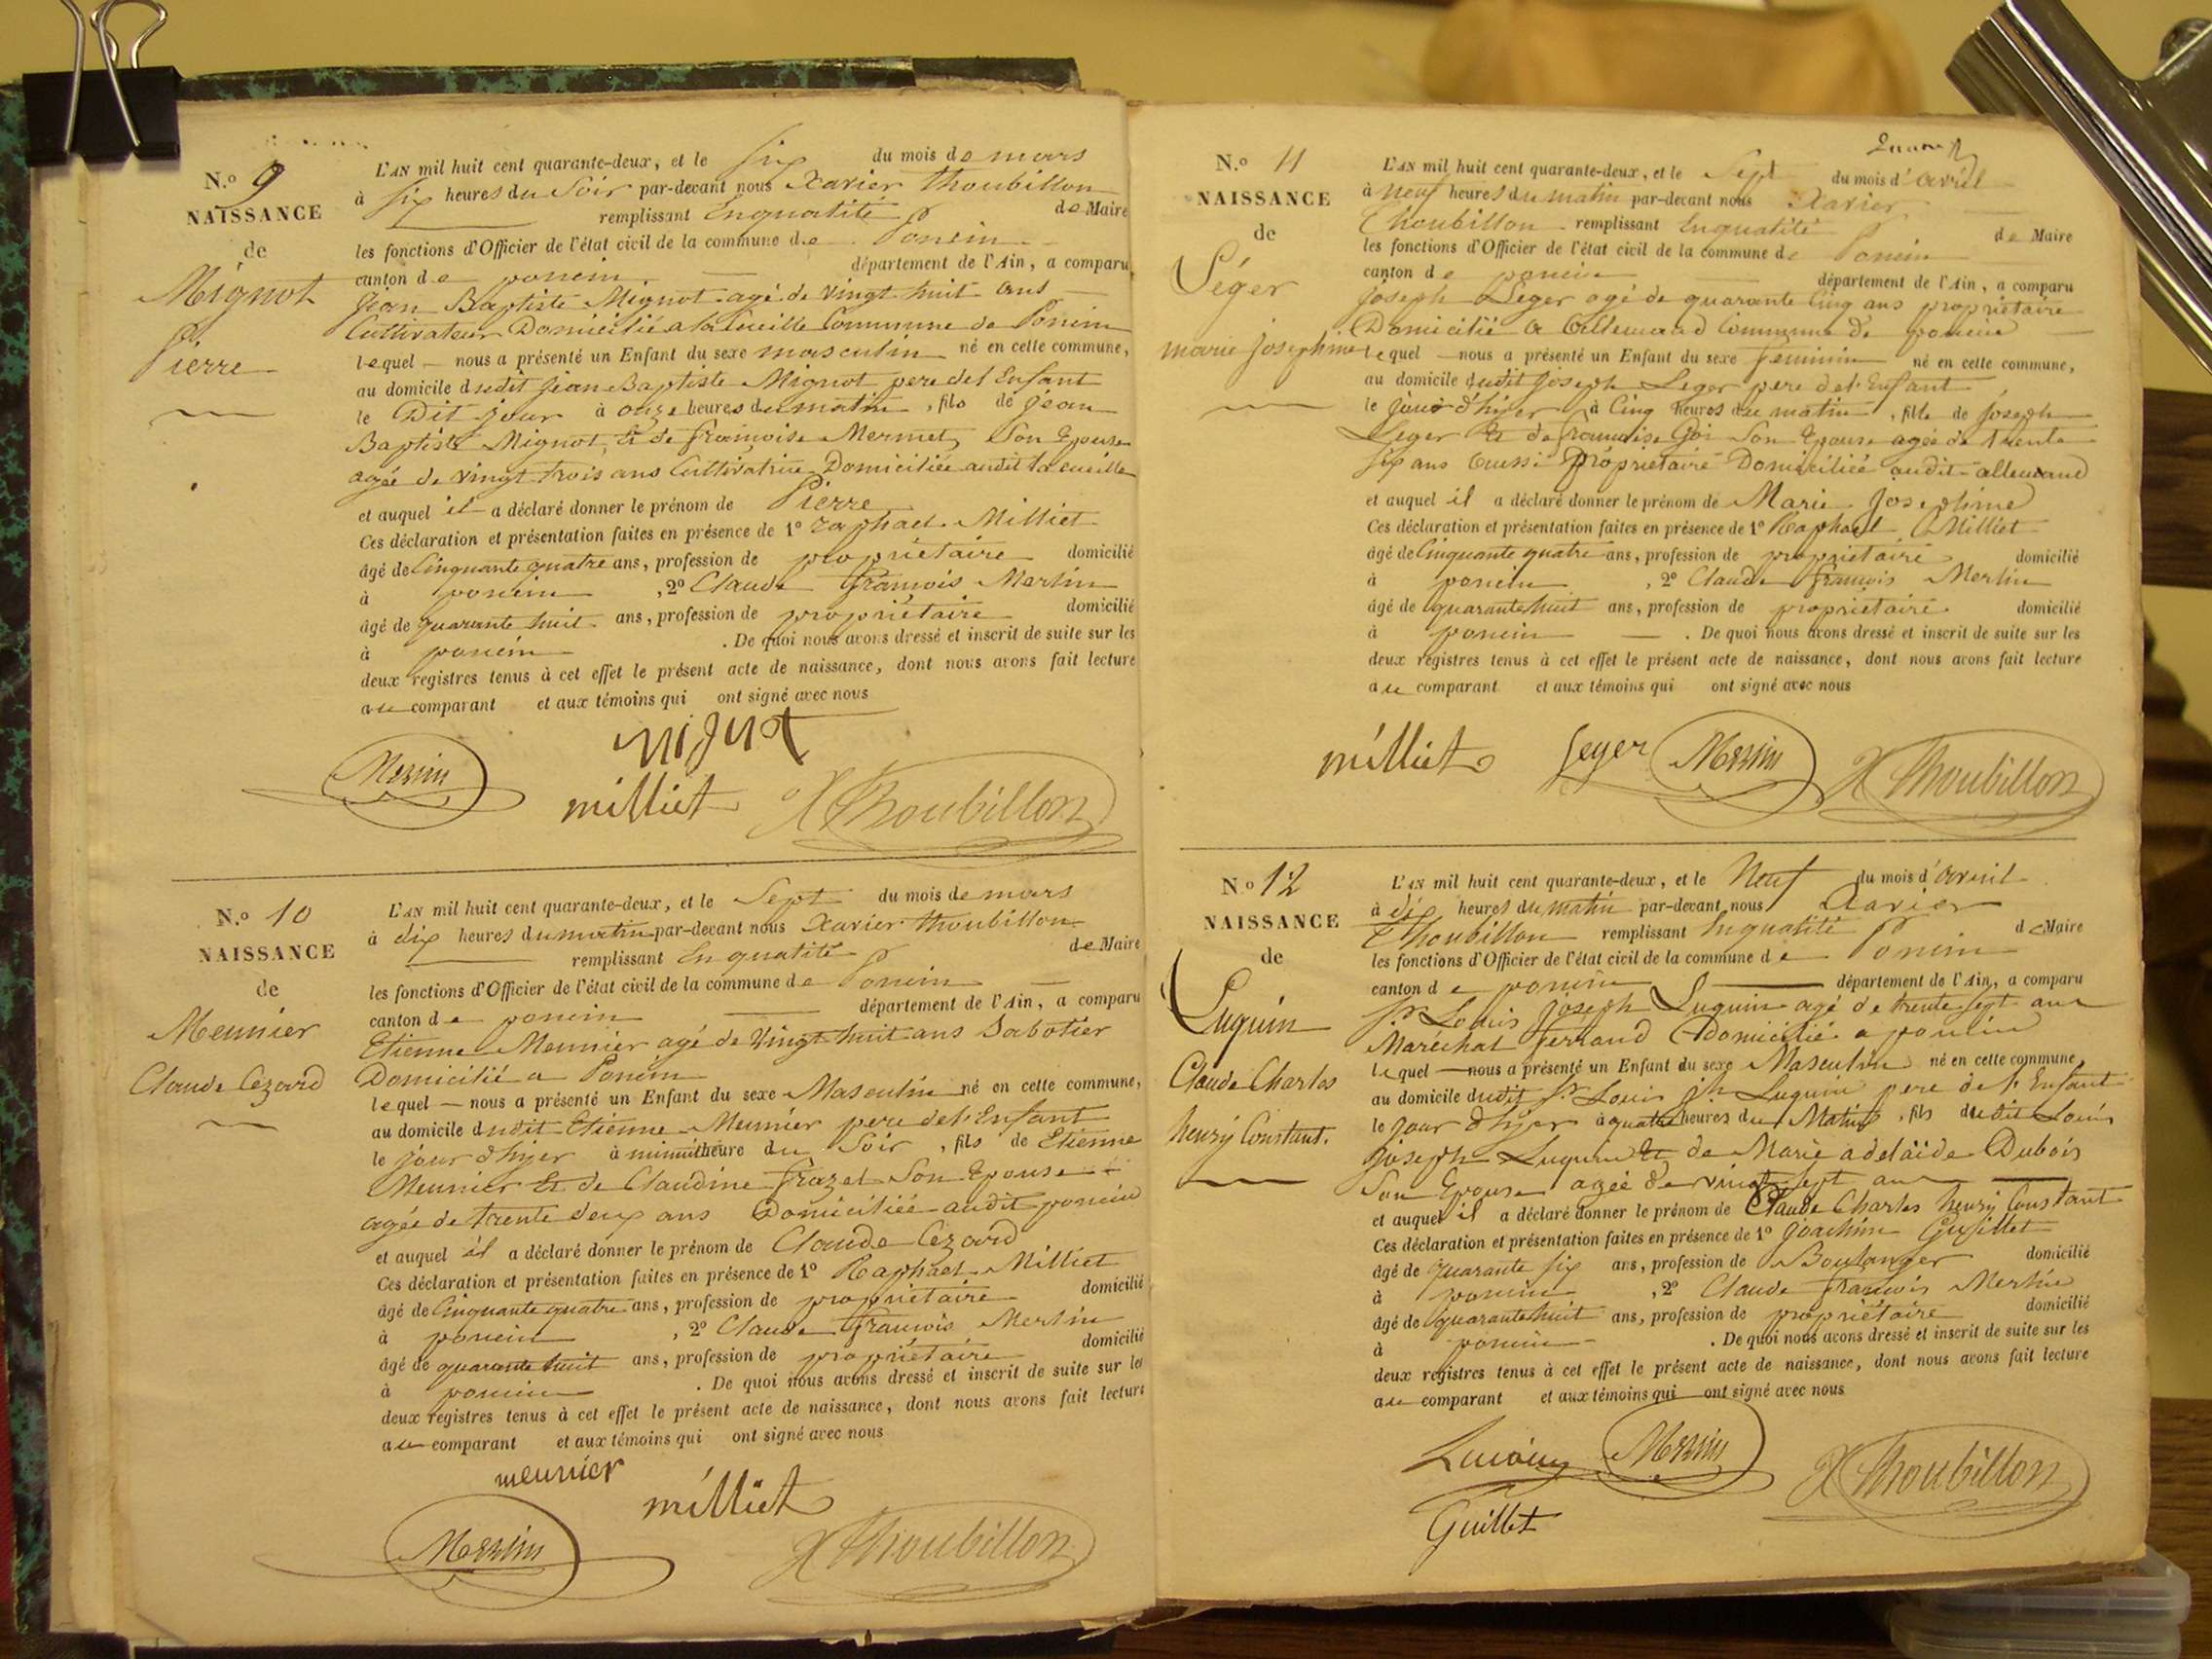 N.º 9
NAISSANCE
de
Mignot
Pierre
L'AN mil huit cent quarante-deux, et le six du mois de mars
à six heures du Soir par-devant nous Xavier thoubillon
remplissant Enqualité de Maire
les fonctions d'Officier de l'état civil de la commune de Poncin
canton de poncin département de l'Ain, a comparu
Jean Baptiste Mignot agé de vingt huit ans
Cultivateur Domicilié a la Commune de Poncin
lequel nous a présenté un Enfant du sexe masculin né en cette commune,
au domicile dudit Jean Baptiste Mignot pere del Enfant
le Dit jour à onze heures du matin, fils de Jean
Baptiste Mignot, Et de francoise Mermet Son Epouse
agée de vingt trois ans Cultivatrice Domiciliée audit
et auquel il a déclaré donner le prénom de Pierre
Ces déclaration et présentation faites en présence de 1º raphael Milliet
âgé de Cinquante quatre ans, profession de propriétaire domicilié
à poncin, 2º Claude francois Merlin
âgé de quarante huit ans, profession de propriétaire domicilié
à poncin. De quoi nous avons dressé et inscrit de suite sur les
deux registres tenus à cet effet le présent acte de naissance, dont nous avons fait lecture
au comparant et aux témoins qui ont signé avec nous
Merlin
milliet
X Thoubillon
N.º 10
NAISSANCE
de
Meunier
Claude Cezard
L'AN mil huit cent quarante-deux, et le Sept du mois de mars
à dix heures du matin par-devant nous Xavier thoubillon
remplissant En qualité de Maire
les fonctions d'Officier de l'état civil de la commune de Poncin
canton de poncin département de l'Ain, a comparu
Etienne Meunier agé de Vingt huit ans Sabotier
Domicilié a Poncin
lequel nous a présenté un Enfant du sexe Masculin né en cette commune,
au domicile dudit Etienne Meunier pere del'Enfant
le jour d'hyer à heure du Soir, fils de Etienne
Meunier Et de Claudine frazet Son Epouse
agée de trente deux ans Domiciliée audit poncin
et auquel il a déclaré donner le prénom de Claude Cézard
Ces déclaration et présentation faites en présence de 1º Raphael Milliet
âgé de Cinquante quatre ans, profession de propriétaire domicilié
à poncin, 2º Claude francois Merlin
âgé de quarante huit ans, profession de propriétaire domicilié
à poncin. De quoi nous avons dressé et inscrit de suite sur les
deux registres tenus à cet effet le présent acte de naissance, dont nous avons fait lecture
au comparant et aux témoins qui ont signé avec nous
meunier
milliet
Merlin
X Thoubillon
N.º 11
NAISSANCE
de
Léger
marie josephine
L'AN mil huit cent quarante-deux, et le Sept du mois d'avril
à neuf heures du matin par-devant nous Xavier
Thoubillon remplissant Enqualité de Maire
les fonctions d'Officier de l'état civil de la commune de Poncin
canton de poncin département de l'Ain, a comparu
joseph Leger agé de quarante Cinq ans propriétaire
Domicilié a allemand Commune de poncin
lequel nous a présenté un Enfant du sexe feminin né en cette commune,
au domicile dudit Joseph Leger pere del'Enfant
le jour d'hyer à Cinq heures du matin, fille de Joseph
Leger Et de francoise Son Epouse agée de trente
six ans aussi Propriétaire Domiciliée audit allemand
et auquel il a déclaré donner le prénom de Marie Josephine
Ces déclaration et présentation faites en présence de 1º Raphael Milliet
âgé de Cinquante quatre ans, profession de propriétaire domicilié
à poncin, 2º Claude francois Merlin
âgé de quarante huit ans, profession de propriétaire domicilié
à poncin. De quoi nous avons dressé et inscrit de suite sur les
deux registres tenus à cet effet le présent acte de naissance, dont nous avons fait lecture
au comparant et aux témoins qui ont signé avec nous
milliet leger Merlin X Thoubillon
N.º 12
NAISSANCE
de
Luquin
Claude Charles
henry Constant.
L'AN mil huit cent quarante-deux, et le Neuf du mois d'avril
à dix heures du matin par-devant nous Xavier
Thoubillon remplissant Enqualité de Maire
les fonctions d'Officier de l'état civil de la commune de Poncin
canton de poncin département de l'Ain, a comparu
Sr. Louis Joseph Luquin agé de trente sept ans
Maréchal ferrand Domicilié a poncin
lequel nous a présenté un Enfant du sexe Masculin né en cette commune,
au domicile dudit Sr. Louis jh. Luquin pere de l'Enfant
le jour d'hyer à quatre heures du Matin, fils dudit Louis
Joseph Luquin Et de Marie adelaïde Dubois
Son Epouse agée de vingt sept ans
et auquel il a déclaré donner le prénom de Claude Charles henry Constant
Ces déclaration et présentation faites en présence de 1º Joachim
âgé de quarante six ans, profession de Boulanger domicilié
à poncin, 2º Claude francois Merlin
âgé de quarante huit ans, profession de propriétaire domicilié
à poncin. De quoi nous avons dressé et inscrit de suite sur les
deux registres tenus à cet effet le présent acte de naissance, dont nous avons fait lecture
au comparant et aux témoins qui ont signé avec nous
Luquin Merlin X Thoubillon
Guillet